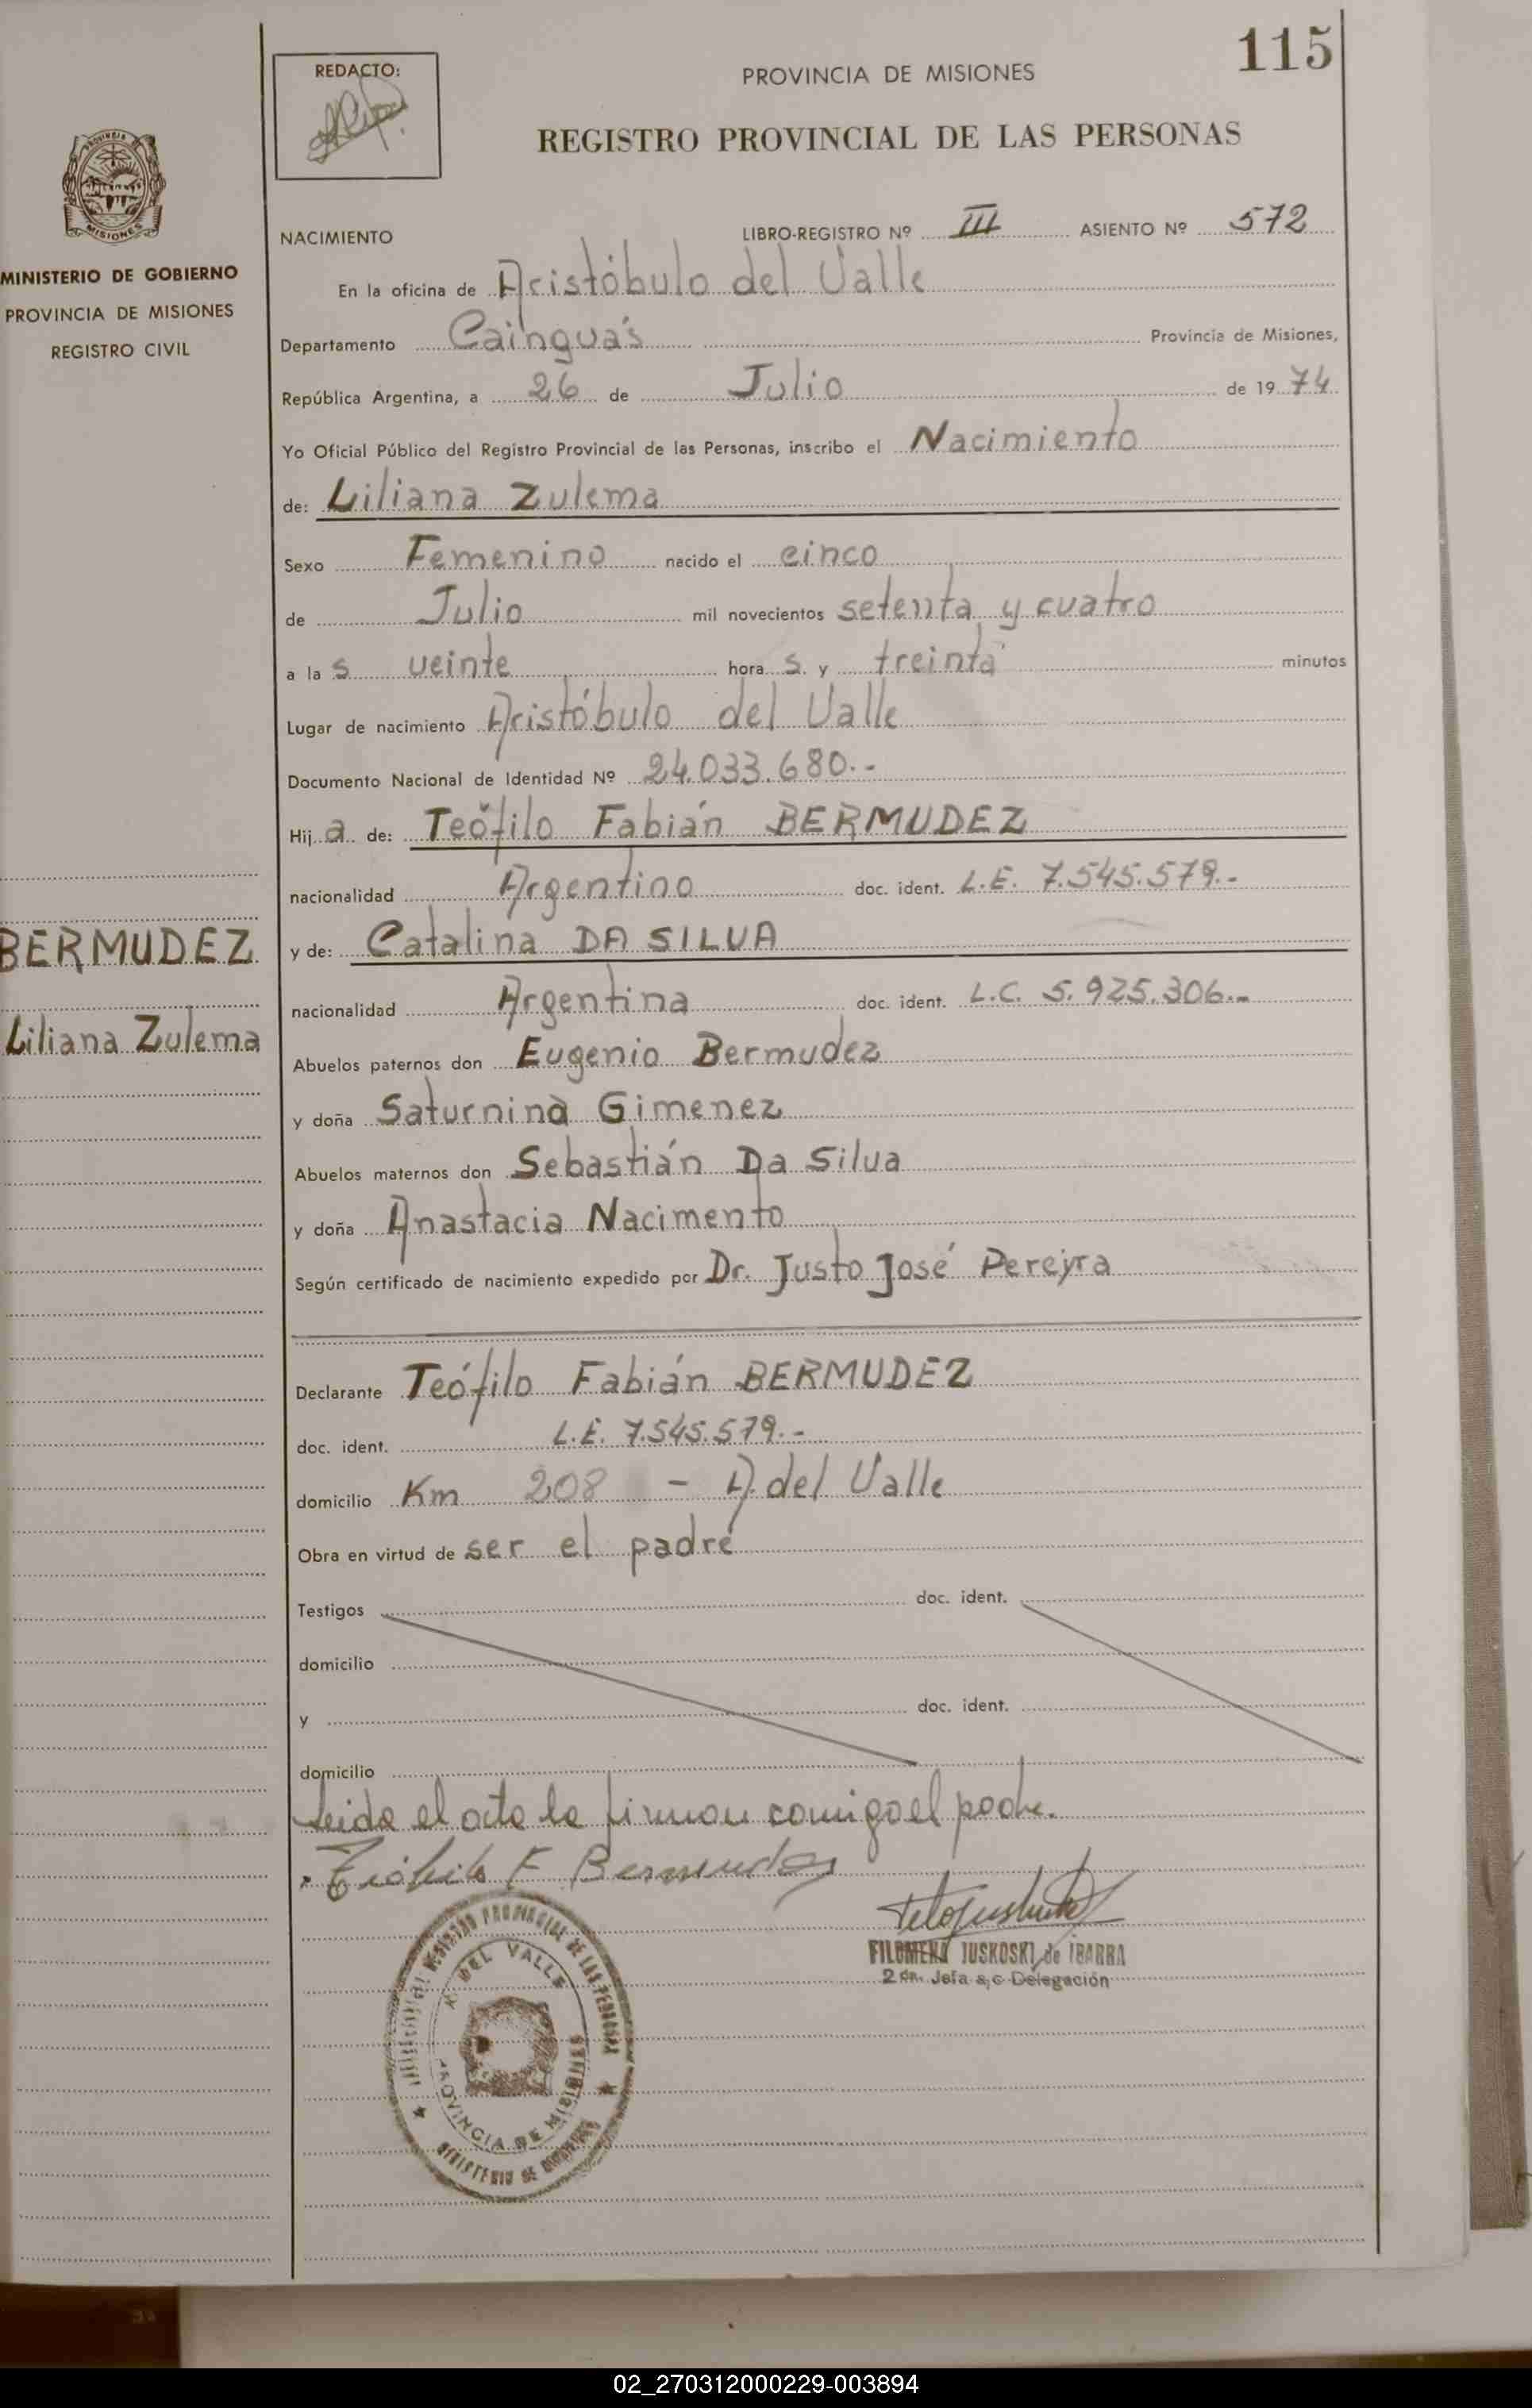 115
REDACTO:
PROVINCIA DE MISIONES
REGISTRO PROVINCIAL DE LAS PERSONAS
MISIONES
MINISTERIO DE GOBIERNO
PROVINCIA DE MISIONES
REGISTRO CIVIL
NACIMIENTO LIBRO-REGISTRO Nº III ASIENTO Nº 572
En la oficina de Aristóbulo del Valle
Departamento Cainguás Provincia de Misiones,
República Argentina, a 26 de Julio de 1974
Yo Oficial Público del Registro Provincial de las Personas, inscribo el Nacimiento
de: Liliana Zulema
Sexo Femenino nacido el cinco
de Julio mil novecientos setenta y cuatro
a las veinte horas y treinta minutos
Lugar de nacimiento Aristóbulo del Valle
Documento Nacional de Identidad Nº 24.033.680.-
Hija de: Teófilo Fabián BERMUDEZ
nacionalidad Argentino doc. ident. L.E. 7.545.579.-
BERMUDEZ
y de: Catalina DA SILVA
nacionalidad Argentina doc. ident. L.C. 5.925.306.-
Liliana Zulema
Abuelos paternos don Eugenio Bermudez
y doña Saturnina Gimenez
Abuelos maternos don Sebastián Da Silva
y doña Anastacia Nacimento
Según certificado de nacimiento expedido por Dr. Justo José Pereyra
Declarante Teófilo Fabián BERMUDEZ
doc. ident. L.E. 7.545.579.-
domicilio Km 208 - A. del Valle
Obra en virtud de ser el padre
Testigos doc. ident.
domicilio
y doc. ident.
domicilio
Leida el acta la firman comigo el padre.
Teófilo F Bermudez
FILOMENA IUSKOSKI de IBARRA
2da. Jefa a/c Delegación
REGISTRO PROVINCIAL DE LAS PERSONAS
A. DEL VALLE
PROVINCIA DE MISIONES
MINISTERIO DE GOBIERNO
02_270312000229-003894